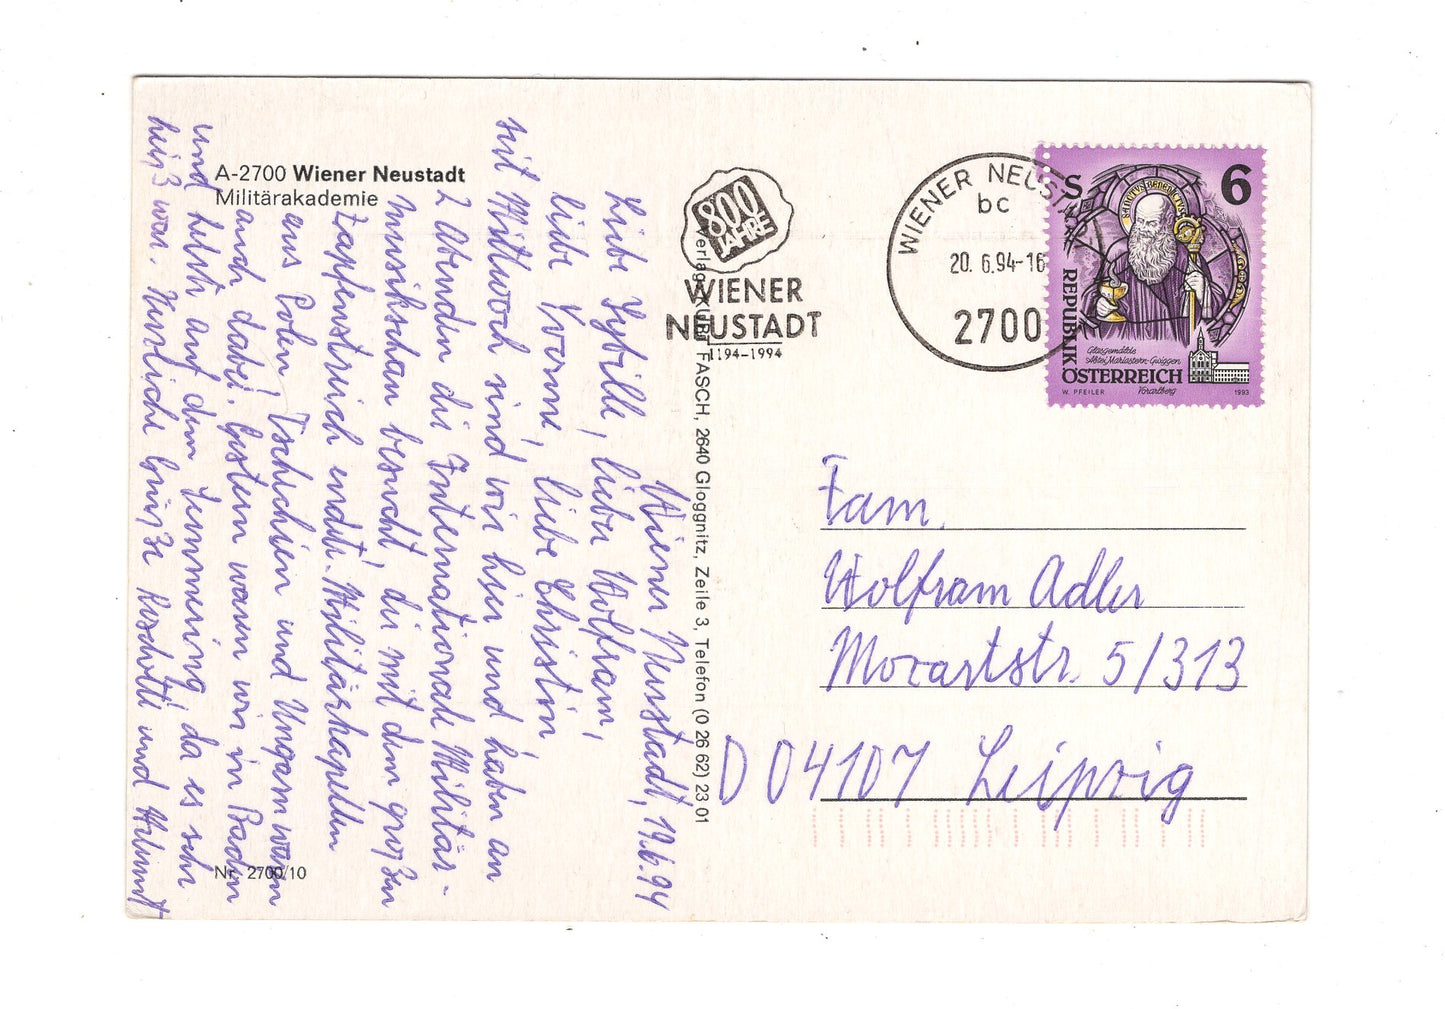 A-2700 Wiener Neustadt
Militärakademie
Wiener Neustadt, 19.6.94
Liebe Sybille, lieber Wolfram,
liebe Yvonne, liebe Christin,
seit Mittwoch sind wir hier und haben an
2 Abenden die Internationale Militär-
musikschau besucht, die mit dem großen
Zapfenstreich endete. Militärkapellen
aus Polen, Tschechien und Ungarn waren
auch dabei. Gestern waren wir in Baden
und selbst auf dem Semmering, da es sehr
heiß war. Herzliche Grüße und Helmut
Nr. 2700/10
Verlag KURT FASCH, 2640 Gloggnitz, Zeile 3, Telefon (0 26 62) 23 01
800
JAHRE
WIENER
NEUSTADT
1194-1994
WIENER NEUSTADT
bc
20. 6.94-16
2700
S 6
SANCTVS BENEDICTVS
REPUBLIK
Glasgemälde
Abtei Mariastern-Gwiggen
Vorarlberg
ÖSTERREICH
W. PFEILER 1993
Fam.
Wolfram Adler
Mozartstr. 5/313
D 04107 Leipzig